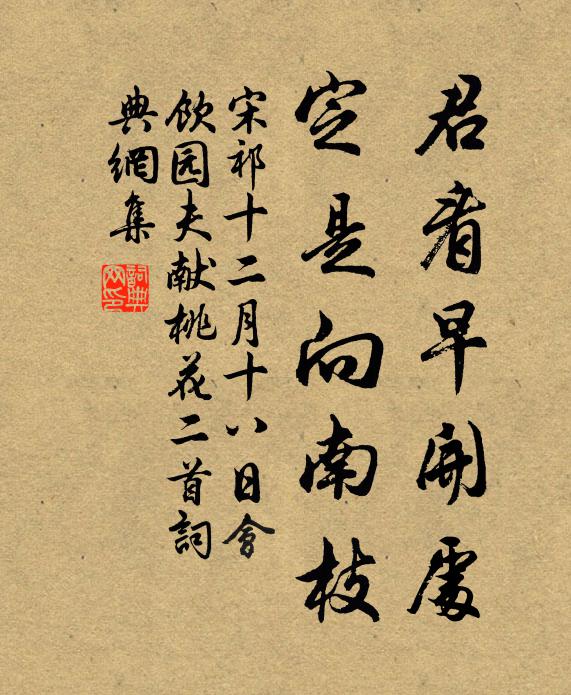 君看早開處
定是向南枝
宋祁十二月十八日會
飲园夫献桃花二首詞
典網集
詞典
网印